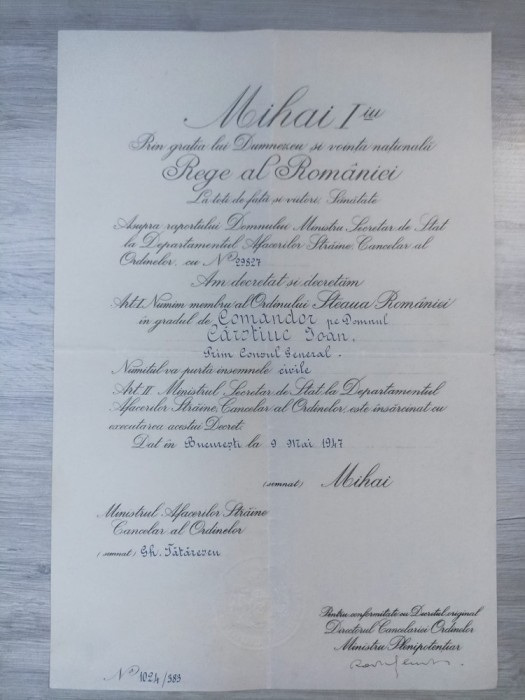 Mihai I iu
Prin gratia lui Dumnezeu si vointa natională
Rege al României
La toti de fată si viitori, Sănătate
Asupra raportului Domnului Ministru Secretar de Stat
la Departamentul Afacerilor Străine, Cancelar al
Ordinelor, cu No 29827
Am decretat si decretăm
Art I. Numim membru al Ordinului Steaua României
în gradul de Comandor pe Domnul
Cârstiuc Ioan.
Prim Consul General.
Numitul va purtă insemnele civile
Art II Ministrul Secretar de Stat la Departamentul
Afacerilor Străine, Cancelar al Ordinelor, este însărcinat cu
executarea acestui Decret.
Dat în București la 9 Mai 1947
(semnat) Mihai
Ministrul Afacerilor Străine
Cancelar al Ordinelor
(semnat) Gh. Tătărescu
Pentru conformitate cu Decretul original
Directorul Cancelariei Ordinelor
Ministru Plenipotentiar
No 1024/983